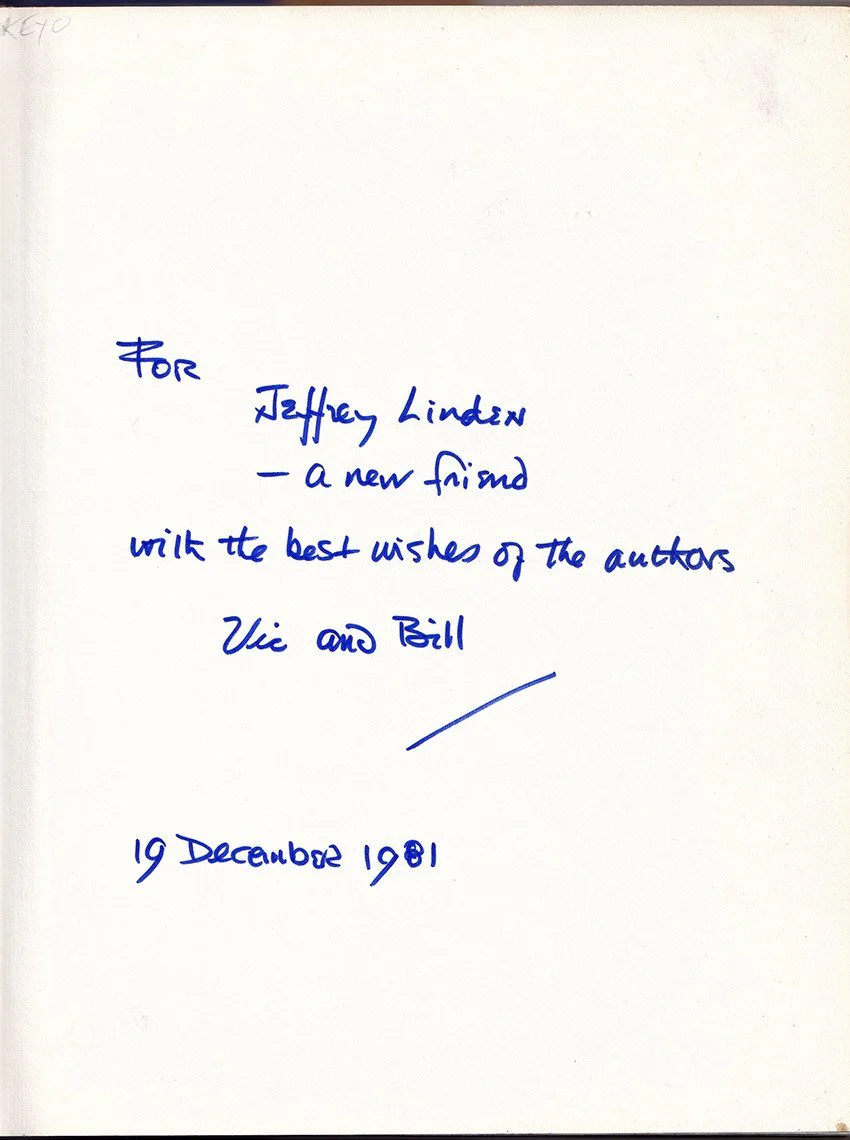 KEYO
FOR
Jeffrey Linden
— a new friend
with the best wishes of the authors
Vic and Bill
19 December 1981